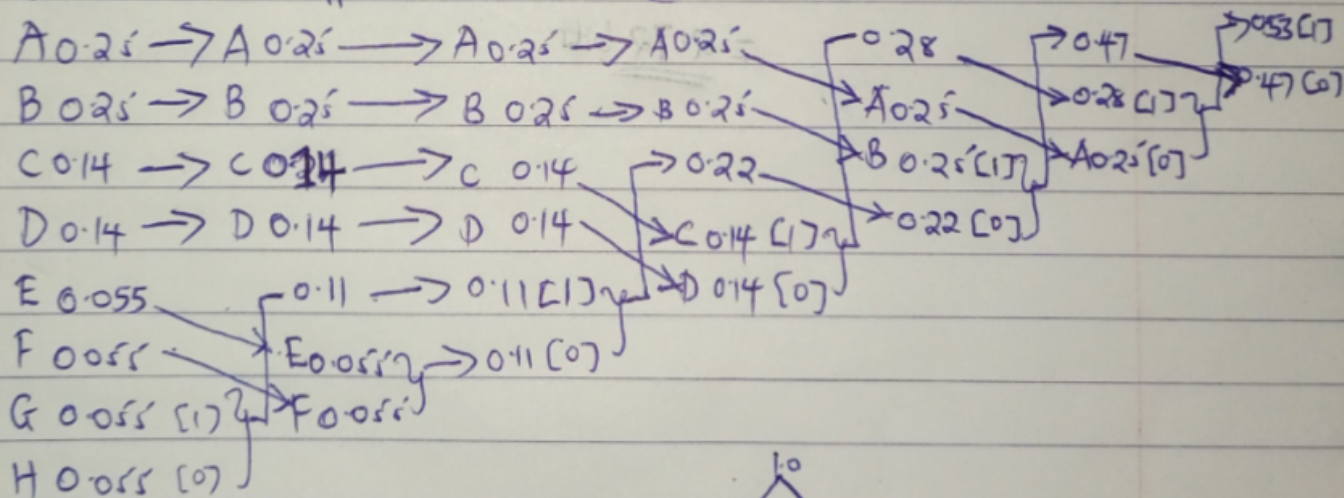 A 0.25 → A 0.25 → A 0.25 → A 0.25 0.28 → 0.47 → 0.53 [1]
B 0.25 → B 0.25 → B 0.25 → B 0.25 → A 0.25 → 0.28 [1] 0.47 [0]
C 0.14 → C 0.14 → C 0.14 → 0.22 → B 0.25 [1] → A 0.25 [0]
D 0.14 → D 0.14 → D 0.14 → C 0.14 [1] → 0.22 [0]
E 0.055 0.11 → 0.11 [1] → D 0.14 [0]
F 0.055 → E 0.055 → 0.11 [0]
G 0.055 [1] → F 0.055
H 0.055 [0]
1.0